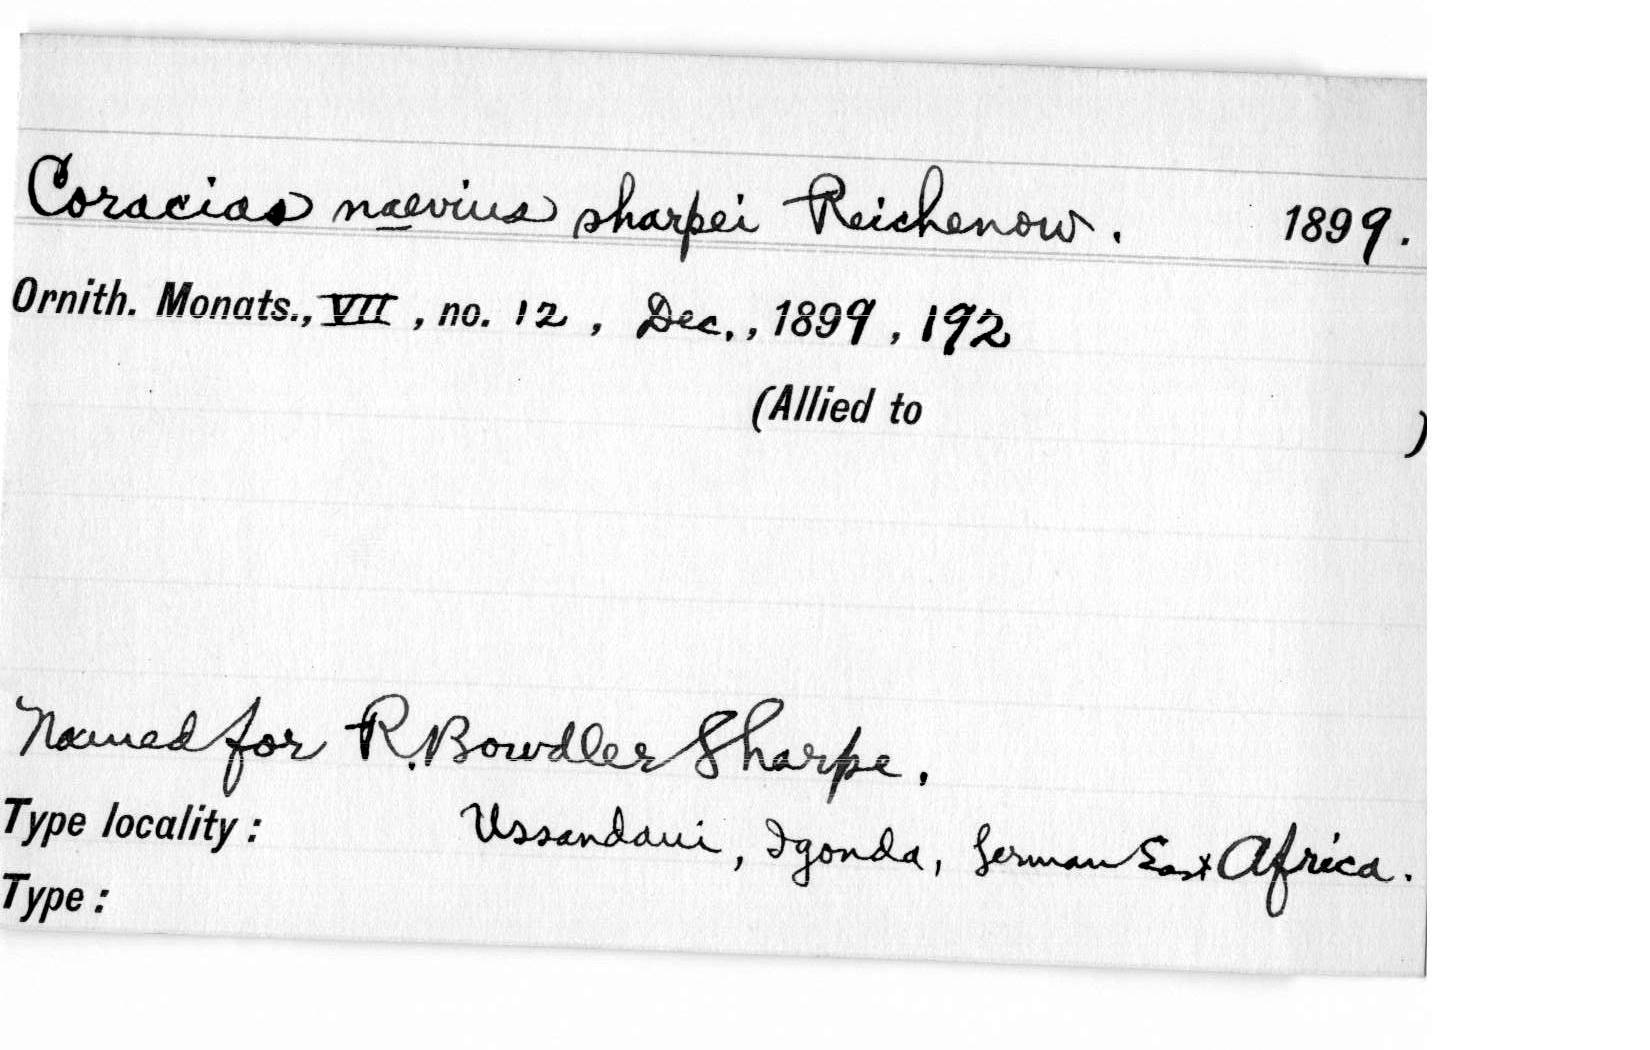 Coracias naevius sharpei Reichenow. 1899.
Ornith. Monats., VII, no. 12, Dec., 1899, 192
(Allied to )
Named for R. Bowdler Sharpe.
Type locality: Ussandaui, Igonda, German East Africa.
Type: